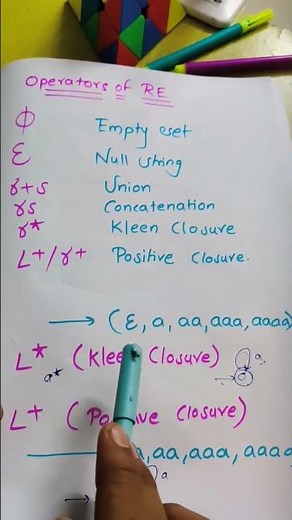 Operators of RE
ϕ Empty set
ε Null string
r+s Union
rs Concatenation
r* Kleen Closure
L+/r+ Positive Closure.
→ (ε, a, aa, aaa, aaaa)
L* (Kleen Closure) a
a*
L+ (Positive Closure)
a, aa, aaa, aaaa
a